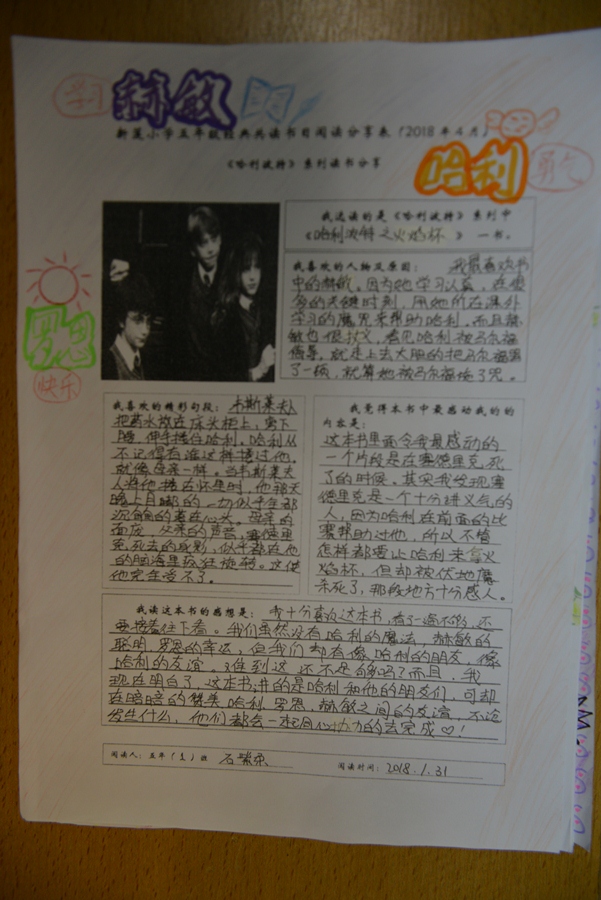 学习
赫敏
新莲小学五年级经典共读书目阅读分享表（2018年4月）
《哈利波特》系列读书分享
哈利
勇气
罗恩
快乐
我选读的是《哈利波特》系列中
《哈利波特之火焰杯》一书。
我喜欢的人物及原因： 我最喜欢书
中的赫敏。因为她学习认真，在很
多的关键时刻，用她所在课外
学习的魔咒来帮助哈利，而且赫
敏也很仗义，看见哈利被马尔福
侮辱，就走上去大胆的把马尔福骂
了一顿，就算她被马尔福施了咒。
我喜欢的精彩句段： 韦斯莱夫人
把药水放在床头柜上，弯下
腰，伸手搂住哈利。哈利从
不记得有谁这样搂过他，
就像母亲一样。当韦斯莱夫
人将他搂在怀里时，他那天
晚上目睹的一切似乎全都
沉甸甸的压在心头。母亲的
面庞，父亲的声音，塞德里
克死去的身影，似乎都在他
的脑海里疯狂旋转。这使
他完全受不了。
我觉得本书中最感动我的的
内容是：
这本书里面令我最感动的
一个片段是在塞德里克死
了的时候。其实我发现塞
德里克是一个十分讲义气的
人，因为哈利在前面的比
赛帮助过他，所以不管
怎样都要让哈利来拿火
焰杯，但却被伏地魔
杀死了，那段地方十分感人。
我读这本书的感想是： 我十分喜欢这本书，看了一遍不够，还
要接着往下看。我们虽然没有哈利的魔法，赫敏的
聪明，罗恩的幸运，但我们却有像哈利的朋友，像
哈利的友谊。难到这还不足够吗？而且，我
现在明白了，这本书讲的是哈利和他的朋友们，可却
在暗暗的赞美哈利、罗恩、赫敏之间的友谊，不论
发生什么，他们都会一起同心协力的去完成♡！
阅读人：五年（1）班 石紫
阅读时间：2018.1.31